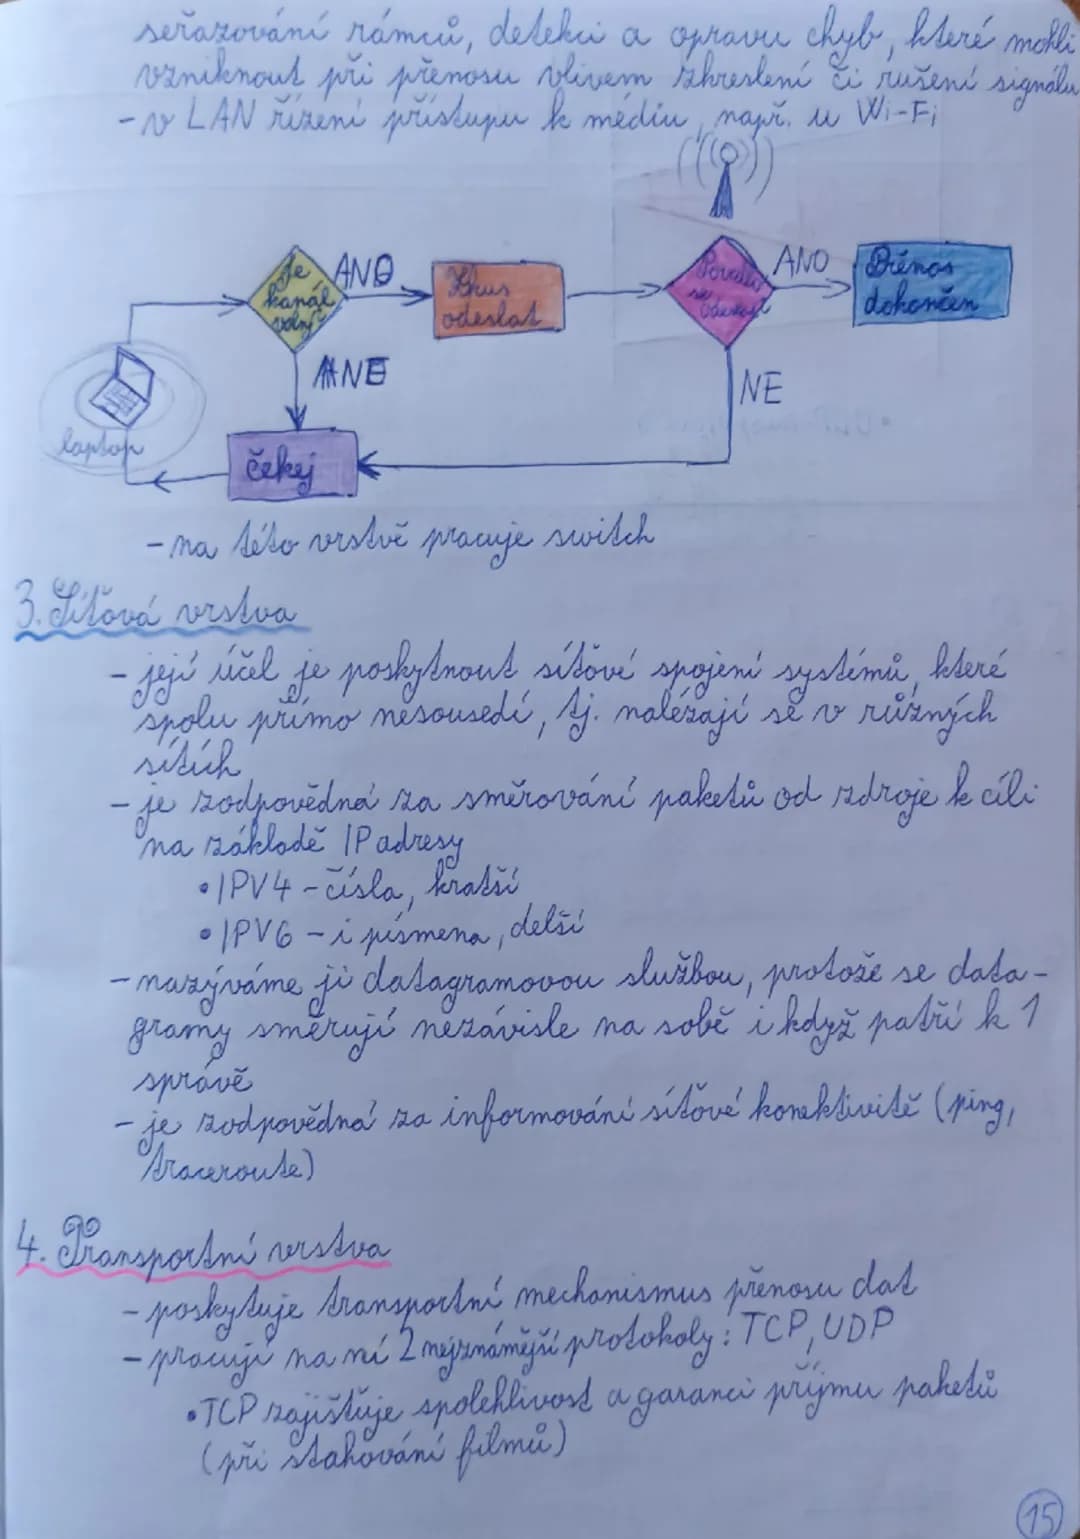 seřazování rámců, detekci a opravu chyb, které mohli
vzniknout při přenosu vlivem zkreslení či rušení signálu
- v LAN řízení přístupu k médiu, např. u Wi-Fi
Je
kanál
volný?
ANO
Zkus
odeslat
Povedlo
se
odeslat
ANO
Přenos
dokončen
NE
NE
laptop
čekej
- na této vrstvě pracuje switch
3. Síťová vrstva
- její účel je poskytnout síťové spojení systémů, které
spolu přímo nesousedí, tj. nalézají se v různých
sítích
- je zodpovědná za směrování paketů od zdroje k cíli
na základě IP adresy
• IPV4 - čísla, kratší
• IPV6 - i písmena, delší
- nazýváme ji datagramovou službou, protože se data-
gramy směrují nezávisle na sobě i když patří k 1
správě
- je zodpovědná za informování síťové konektivitě (ping,
traceroute)
4. Transportní vrstva
- poskytuje transportní mechanismus přenosu dat
- pracují na ní 2 nejznámější protokoly: TCP, UDP
• TCP zajišťuje spolehlivost a garanci příjmu paketů
(při stahování filmů)
15